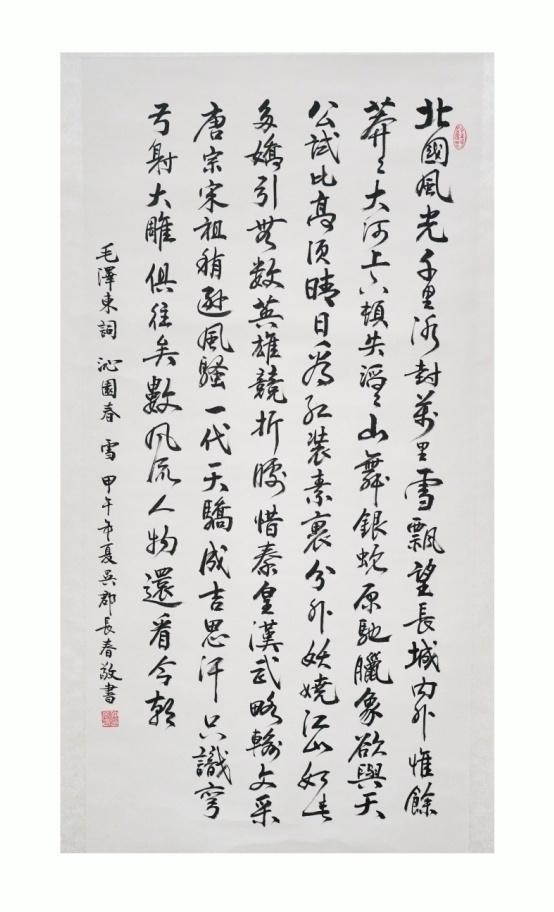 北國風光千里冰封萬里雪飄望長城内外惟餘
莽〻大河上下頓失滔〻山舞銀蛇原馳臘象欲與天
公試比高须晴日爲红装素裹分外妖嬈江山如此
多嬌引無數英雄競折腰惜秦皇漢武略輸文采
唐宗宋祖稍遜風騷一代天驕成吉思汗只識彎
弓射大雕俱往矣數風流人物還看今朝
毛澤東詞 沁園春 雪 甲午年夏吳郡長春敬書